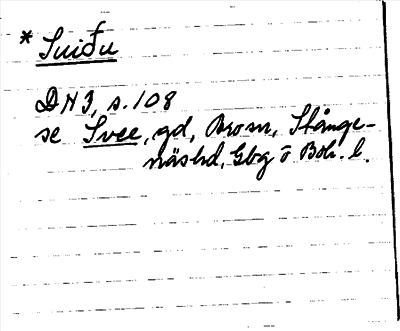 * Suiðu
DN 3, s. 108
se Svee, gd, Brosn, Stånge-
näshd, Gbg o Boh. l.